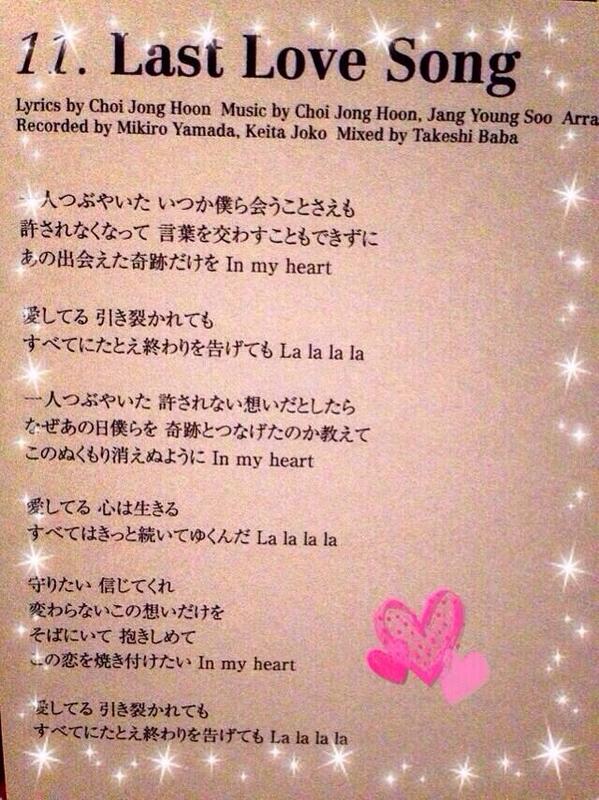 11. Last Love Song
Lyrics by Choi Jong Hoon Music by Choi Jong Hoon, Jang Young Soo Arra
Recorded by Mikiro Yamada, Keita Joko Mixed by Takeshi Baba
一人つぶやいた いつか僕ら会うことさえも
許されなくなって 言葉を交わすこともできずに
あの出会えた奇跡だけを In my heart
愛してる 引き裂かれても
すべてにたとえ終わりを告げても La la la la
一人つぶやいた 許されない想いだとしたら
なぜあの日僕らを 奇跡とつなげたのか教えて
このぬくもり消えぬように In my heart
愛してる 心は生きる
すべてはきっと続いてゆくんだ La la la la
守りたい 信じてくれ
変わらないこの想いだけを
そばにいて 抱きしめて
この恋を焼き付けたい In my heart
愛してる 引き裂かれても
すべてにたとえ終わりを告げても La la la la